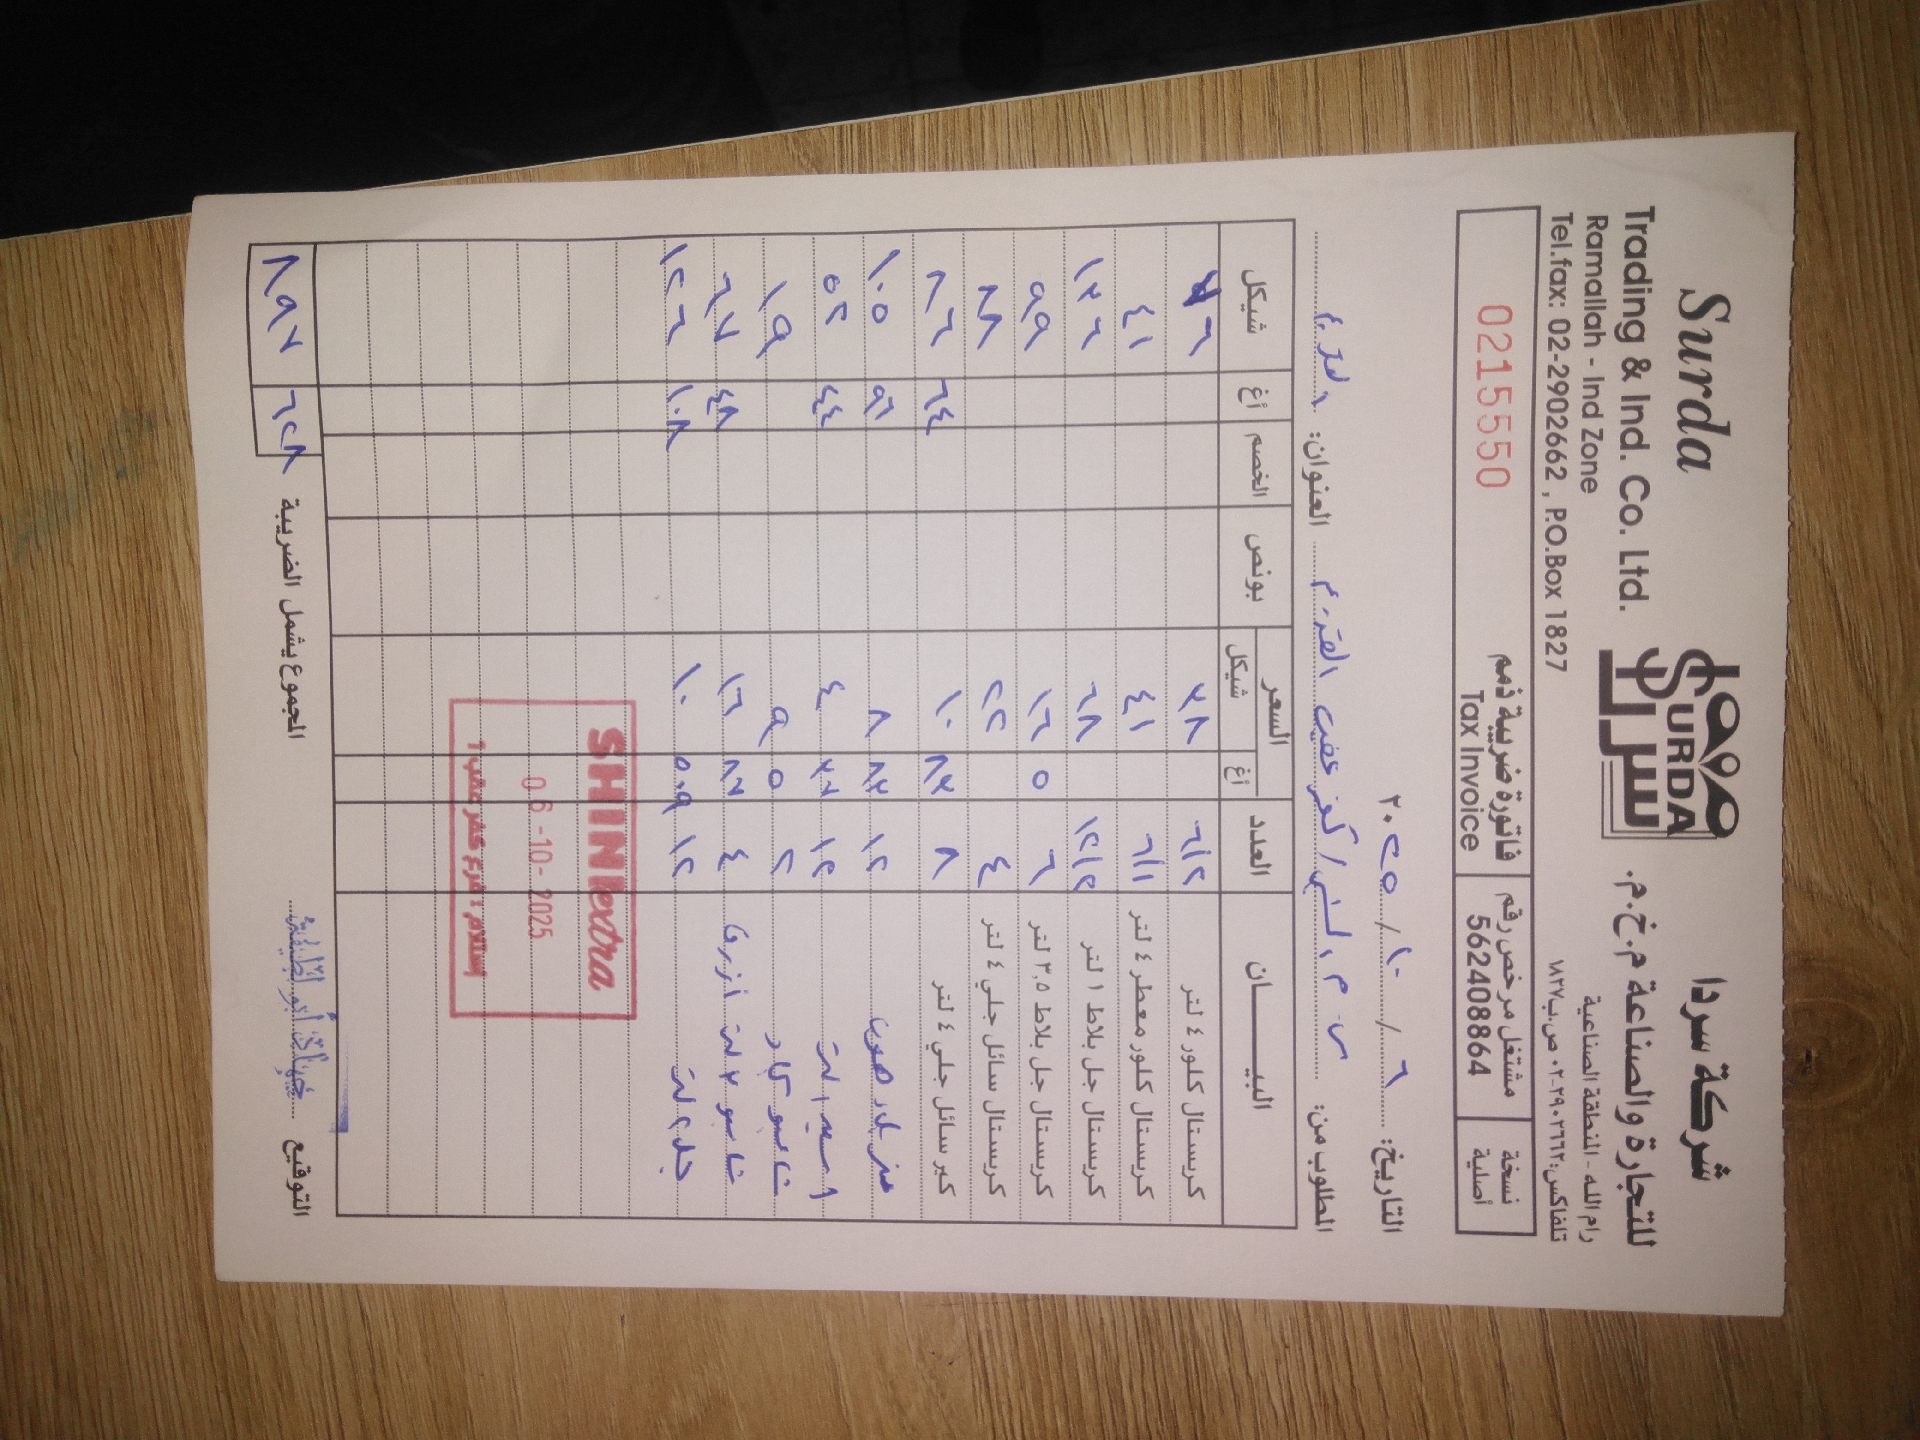 Surda
Trading & Ind. Co. Ltd.
Ramallah - Ind Zone
Tel.fax: 02-2902662 , P.O.Box 1827
SURDA
سردا
شركة سردا
للتجارة والصناعة م.خ.م.
رام الله - المنطقة الصناعية
تلفاكس: ٠٢-٢٩٠٢٦٦٢ ص.ب ١٨٢٧
0215550
فاتورة ضريبية ذمم
Tax Invoice
مشتغل مرخص رقم
562408864
نسخة
أصلية
التاريخ: ٦ / ١٠ / ٢٠٢٥
المطلوب من: العنوان:
البيـــــان العدد السعر بونص الخصم أغ شيكل
أغ شيكل
كريستال كلور ٤ لتر ٦/٢ ٣٨ ٧٦
كريستال كلور معطر ٤ لتر ٦/١ ٤١ ٤١
كريستال جل بلاط ١ لتر ١٢/٢ ٦٨ ١٣٦
كريستال جل بلاط ٣,٥ لتر ٦ ٥ ١٦ ٩٩
كريستال سائل جلي ٤ لتر ٤ ٢٢ ٨٨
كير سائل جلي ٤ لتر ٨ ٨٣ ١٠ ٦٤ ٨٦
١٢ ٨٣ ٨ ٩٦ ١٠٥
١٢ ٣٧ ٤ ٤٤ ٥٢
شامبو ٢ ٥ ٩ ١٩
شامبو أزرق ٤ ٨٧ ١٦ ٤٨ ٦٧
١٢ ٥٠٩ ١٠ ١٠٨ ١٢٦
SHINI extra
06 -10- 2025
إستلام : فرع كفر عقب 1
المجموع يشمل الضريبة ٦٢٨ ٨٩٧
التوقيع